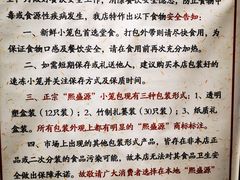 毒或食源性疾病发生，我店特作出以下食物安全告知：
一、新鲜小笼包首选堂食。打包外带请尽快食用，为
保证食物口感及餐饮安全，请在食用前再次充分加热。
二、如需短期保存或礼送他人，建议购买本店包装好的
速冻小笼并关注保存方式及保质时间。
三、正宗“熙盛源”小笼包现有三种包装形式：1、透明
塑料盒（12只装）；2、竹制礼篓装（30只装）；3、纸质礼
盒装。所有包装外观上都有明显的“熙盛源”商标标注。
四、市场上出现的其他包装形式产品，皆存在非本店正
品或二次分装的食品污染可能，故本店无法对其食品卫生安
全做出保障承诺。故敬请广大消费者选择在本店“熙盛源”